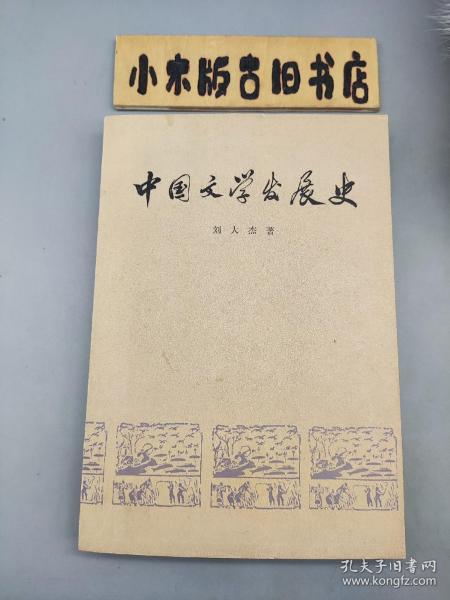 小宋版古旧书店
中国文学发展史
刘大杰著
孔夫子旧书网
www.kongfz.com